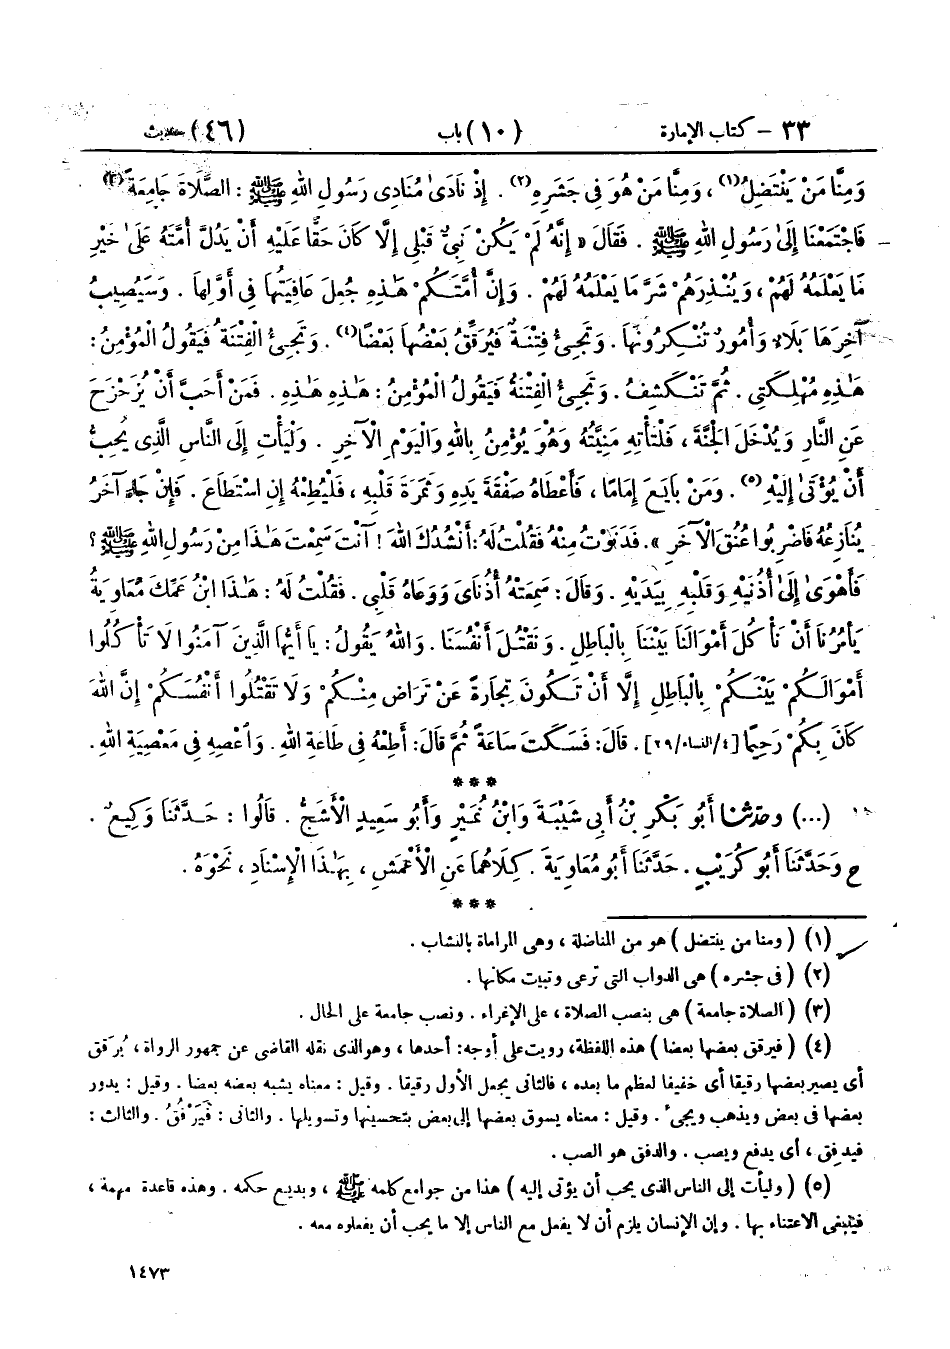 ٣٣ – كتاب الإمارة (١٠) باب (٤٦) حديث
وَمِنَّا مَنْ يَنْتَضِلُ(١)، وَمِنَّا مَنْ هُوَ فِى جَشَرِهِ(٢). إِذْ نَادَىٰ مُنَادِى رَسُولِ اللهِ ﷺ: الصَّلَاةَ جَامِعَةً(٣)
فَاجْتَمَعْنَا إِلَىٰ رَسُولِ اللهِ ﷺ. فَقَالَ « إِنَّهُ لَمْ يَكُنْ نَبِىٌّ قَبْلِى إِلَّا كَانَ حَقًّا عَلَيْهِ أَنْ يَدُلَّ أُمَّتَهُ عَلَىٰ خَيْرِ
مَا يَعْلَمُهُ لَهُمْ، وَيُنْذِرَهُمْ شَرَّ مَا يَعْلَمُهُ لَهُمْ. وَإِنَّ أُمَّتَكُمْ هَـٰذِهِ جُعِلَ عَافِيَتُهَا فِى أَوَّلِهَا. وَسَيُصِيبُ
آخِرَهَا بَلَاءٌ وَأُمُورٌ تُنْكِرُونَهَا. وَتَجِىءُ فِتْنَةٌ فَيُرَقِّقُ بَعْضُهَا بَعْضًا(٤). وَتَجِىءُ الْفِتْنَةُ فَيَقُولُ الْمُؤْمِنُ:
هَـٰذِهِ مُهْلِكَتِى. ثُمَّ تَنْكَشِفُ. وَتَجِىءُ الْفِتْنَةُ فَيَقُولُ الْمُؤْمِنُ: هَـٰذِهِ هَـٰذِهِ. فَمَنْ أَحَبَّ أَنْ يُزَحْزَحَ
عَنِ النَّارِ وَيُدْخَلَ الْجَنَّةَ، فَلْتَأْتِهِ مَنِيَّتُهُ وَهُوَ يُؤْمِنُ بِاللهِ وَالْيَوْمِ الْآخِرِ. وَلْيَأْتِ إِلَى النَّاسِ الَّذِى يُحِبُّ
أَنْ يُؤْتَىٰ إِلَيْهِ(٥). وَمَنْ بَايَعَ إِمَامًا، فَأَعْطَاهُ صَفْقَةَ يَدِهِ وَثَمَرَةَ قَلْبِهِ، فَلْيُطِعْهُ إِنِ اسْتَطَاعَ. فَإِنْ جَاءَ آخَرُ
يُنَازِعُهُ فَاضْرِبُوا عُنُقَ الْآخَرِ ». فَدَنَوْتُ مِنْهُ فَقُلْتُ لَهُ: أَنْشُدُكَ اللهَ! آنْتَ سَمِعْتَ هَـٰذَا مِنْ رَسُولِ اللهِ ﷺ؟
فَأَهْوَىٰ إِلَىٰ أُذُنَيْهِ وَقَلْبِهِ بِيَدَيْهِ. وَقَالَ: سَمِعَتْهُ أُذُنَاىَ وَوَعَاهُ قَلْبِى. فَقُلْتُ لَهُ: هَـٰذَا ابْنُ عَمِّكَ مُعَاوِيَةُ
يَأْمُرُنَا أَنْ نَأْكُلَ أَمْوَالَنَا بَيْنَنَا بِالْبَاطِلِ. وَنَقْتُلَ أَنْفُسَنَا. وَاللهُ يَقُولُ: يَا أَيُّهَا الَّذِينَ آمَنُوا لَا تَأْكُلُوا
أَمْوَالَكُمْ بَيْنَكُمْ بِالْبَاطِلِ إِلَّا أَنْ تَكُونَ تِجَارَةً عَنْ تَرَاضٍ مِنْكُمْ وَلَا تَقْتُلُوا أَنْفُسَكُمْ إِنَّ اللهَ
كَانَ بِكُمْ رَحِيمًا [٤/النساء/٢٩]. قَالَ: فَسَكَتَ سَاعَةً ثُمَّ قَالَ: أَطِعْهُ فِى طَاعَةِ اللهِ. وَاعْصِهِ فِى مَعْصِيَةِ اللهِ.
***
(...) وحَدَّثَنَا أَبُو بَكْرِ بْنُ أَبِى شَيْبَةَ وَابْنُ نُمَيْرٍ وَأَبُو سَعِيدٍ الْأَشَجُّ. قَالُوا: حَدَّثَنَا وَكِيعٌ.
ح وَحَدَّثَنَا أَبُو كُرَيْبٍ. حَدَّثَنَا أَبُو مُعَاوِيَةَ. كِلَاهُمَا عَنِ الْأَعْمَشِ، بِهَـٰذَا الْإِسْنَادِ، نَحْوَهُ.
***
(١) ( ومنا من ينتضل ) هو من المناضلة، وهى المراماة بالنشاب.
(٢) ( فى جشره ) هى الدواب التى ترعى وتبيت مكانها.
(٣) ( الصلاة جامعة ) هى بنصب الصلاة، على الإغراء. ونصب جامعة على الحال.
(٤) ( فيرقق بعضها بعضا ) هذه اللفظة، رويت على أوجه: أحدها، وهو الذى نقله القاضى عن جمهور الرواة، يُرَقق
أى يصير بعضها رقيقا أى خفيفا لعظم ما بعده، فالثانى يجعل الأول رقيقا. وقيل: معناه يشبه بعضه بعضا. وقيل: يدور
بعضها فى بعض ويذهب ويجىء. وقيل: معناه يسوق بعضها إلى بعض بتحسينها وتسويلها. والثانى: فَيَرْفُقُ. والثالث:
فيدفق، أى يدفع ويصب. والدفق هو الصب.
(٥) ( وليأت إلى الناس الذى يحب أن يؤتى إليه ) هذا من جوامع كلمه ﷺ، وبديع حكمه. وهذه قاعدة مهمة،
فينبغى الاعتناء بها. وإن الإنسان يلزم أن لا يفعل مع الناس إلا ما يحب أن يفعلوه معه.
١٤٧٣